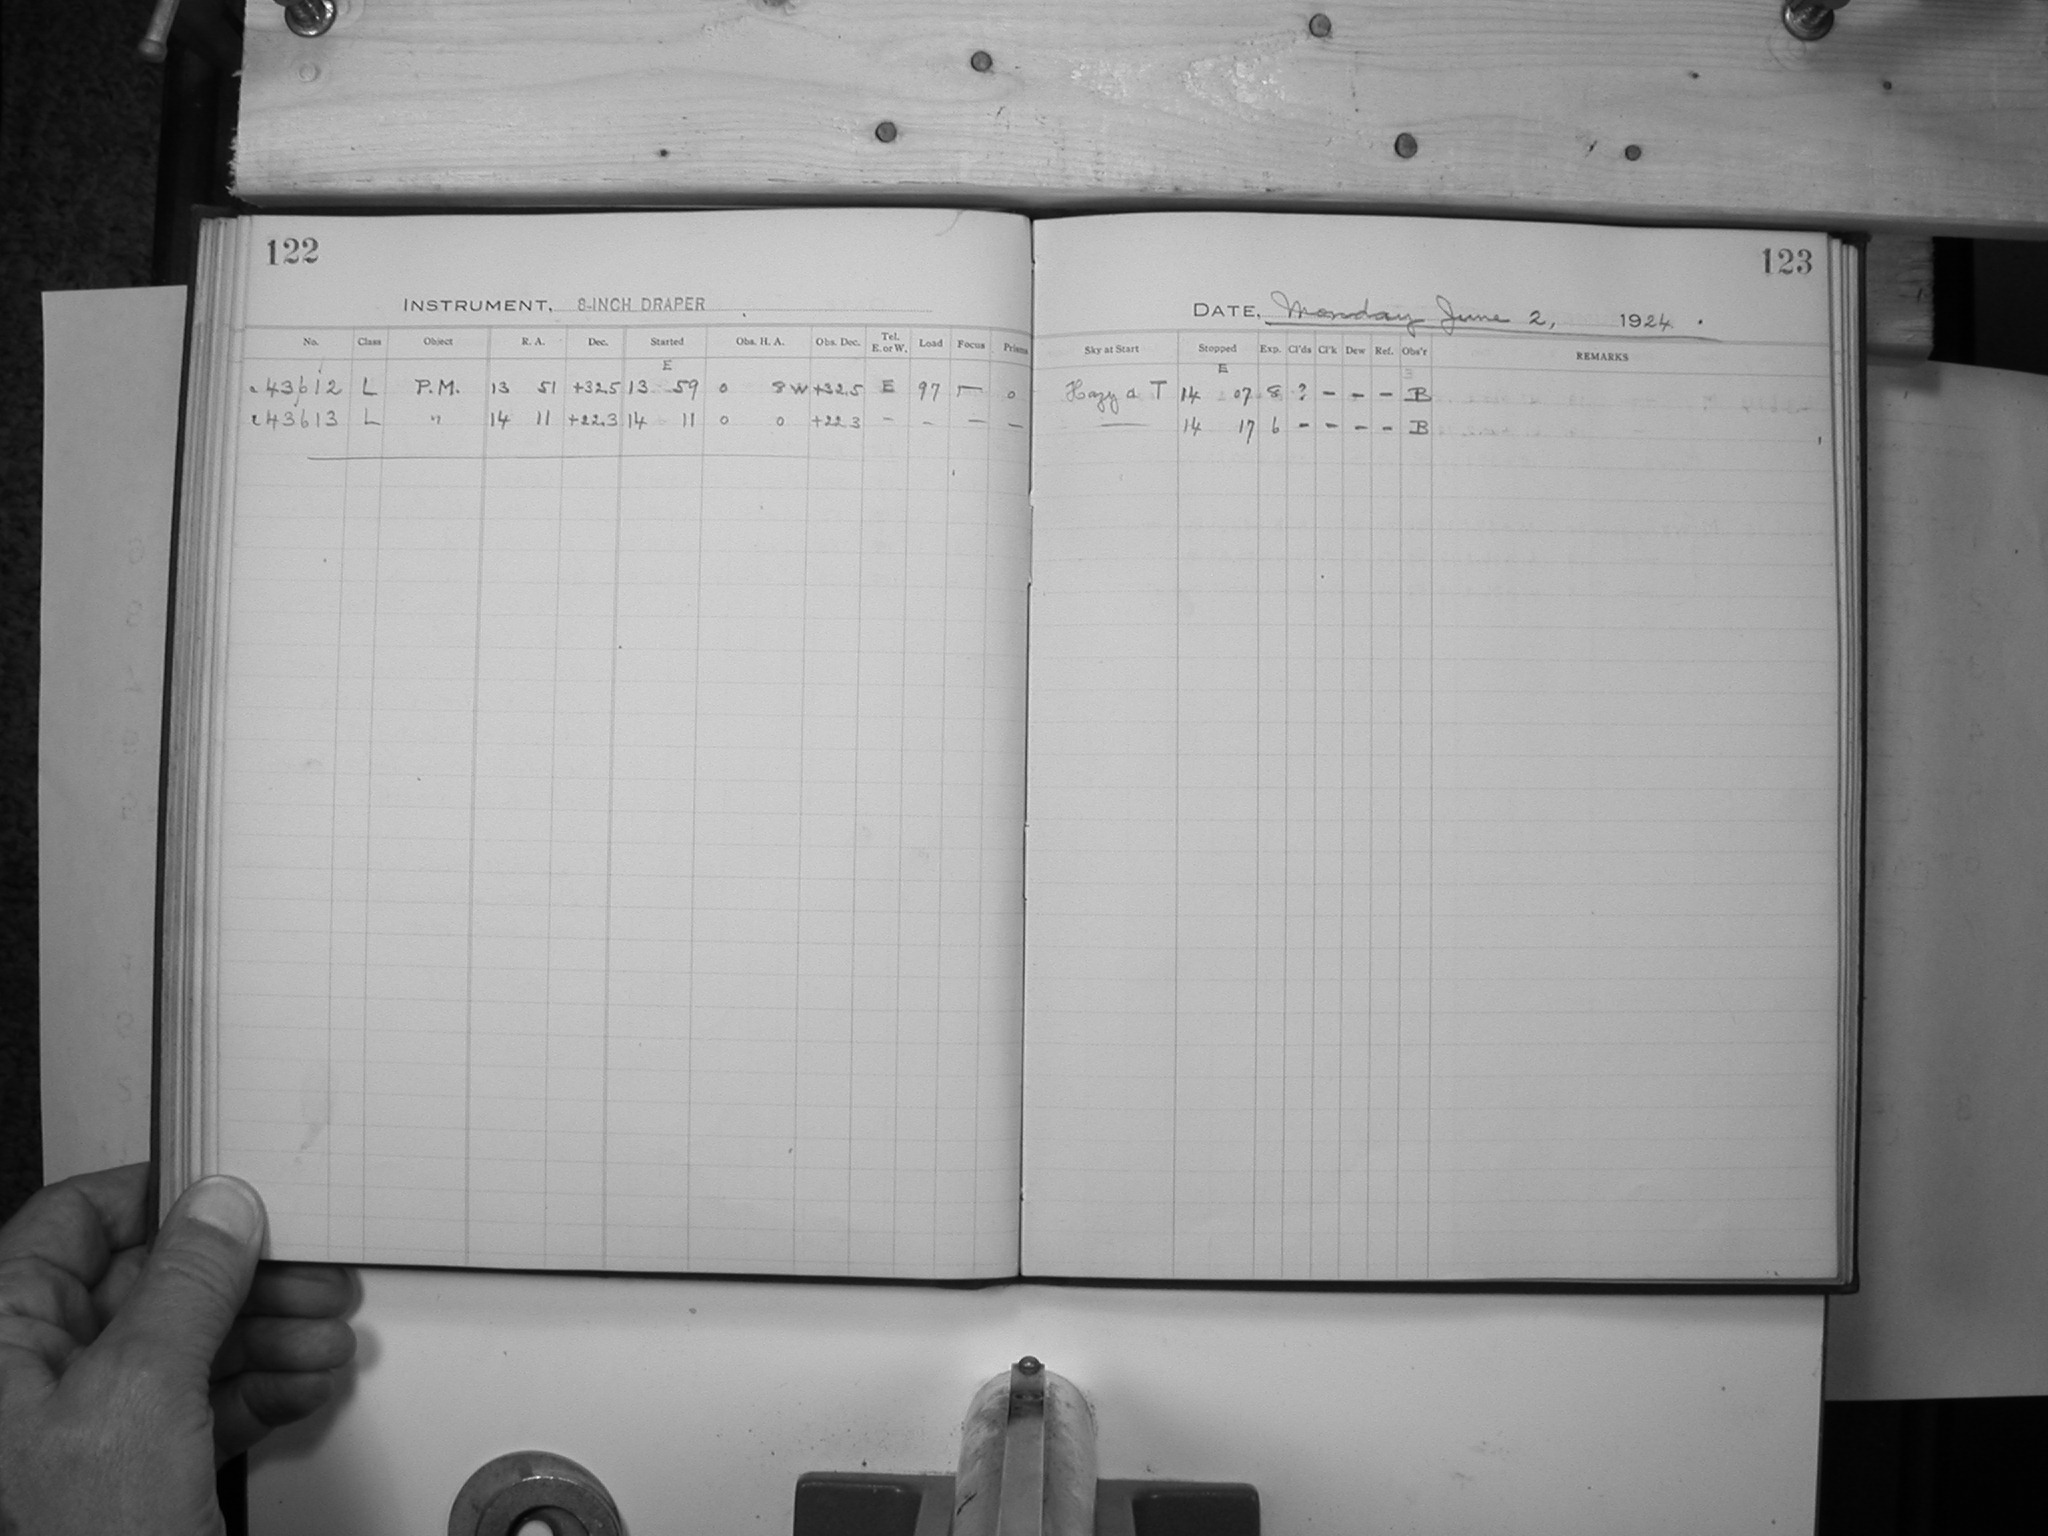 122
INSTRUMENT, 8-INCH DRAPER
No. Class Object R. A. Dec. Started Obs. H. A. Obs. Dec. Tel. E. or W. Load Focus Prisms
E
43612 L P.M. 13 51 +32.5 13 59 0 8 W +32.5 E 97 — 0
43613 L " 14 11 +22.3 14 11 0 0 +22.3 – – – –
123
DATE, Monday June 2, 1924.
Sky at Start Stopped Exp. Cl'ds Cl'k Dew Ref. Obs'r REMARKS
E
Hazy & T 14 07 8 ? – – – B
— 14 17 6 – – – – B